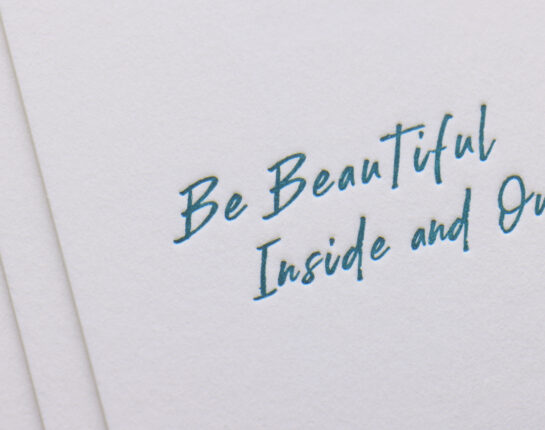 Be Beautiful
Inside and Ou